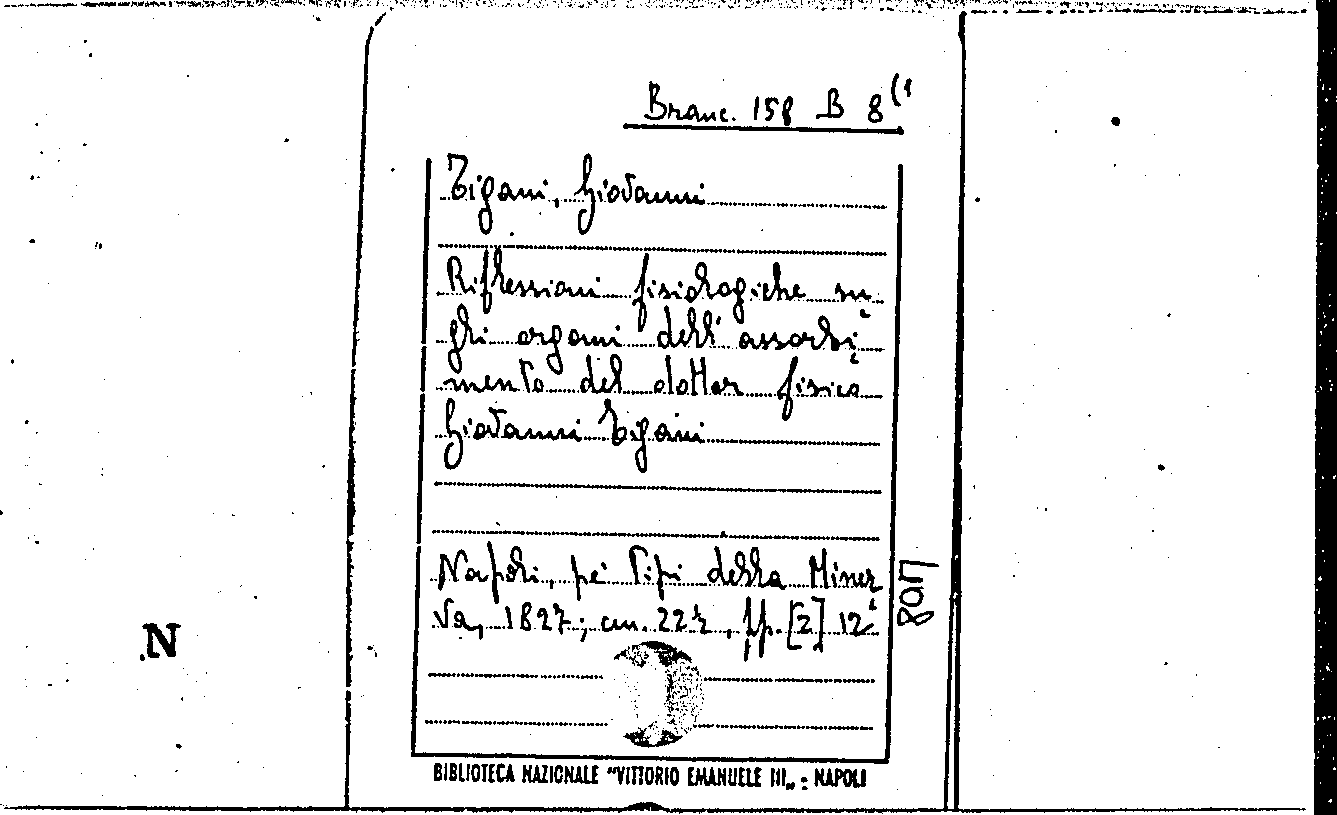 Branc. 158 B 8(1
Tigani, Giovanni
Riflessioni fisiologiche su
gli organi dell'assorbi
mento del dottor fisico
Giovanni Tigani
Napoli, pe' Tipi della Miner
va, 1827; cm. 22½, pp. [2] 12
BIBLIOTECA NAZIONALE "VITTORIO EMANUELE III„ - NAPOLI
N